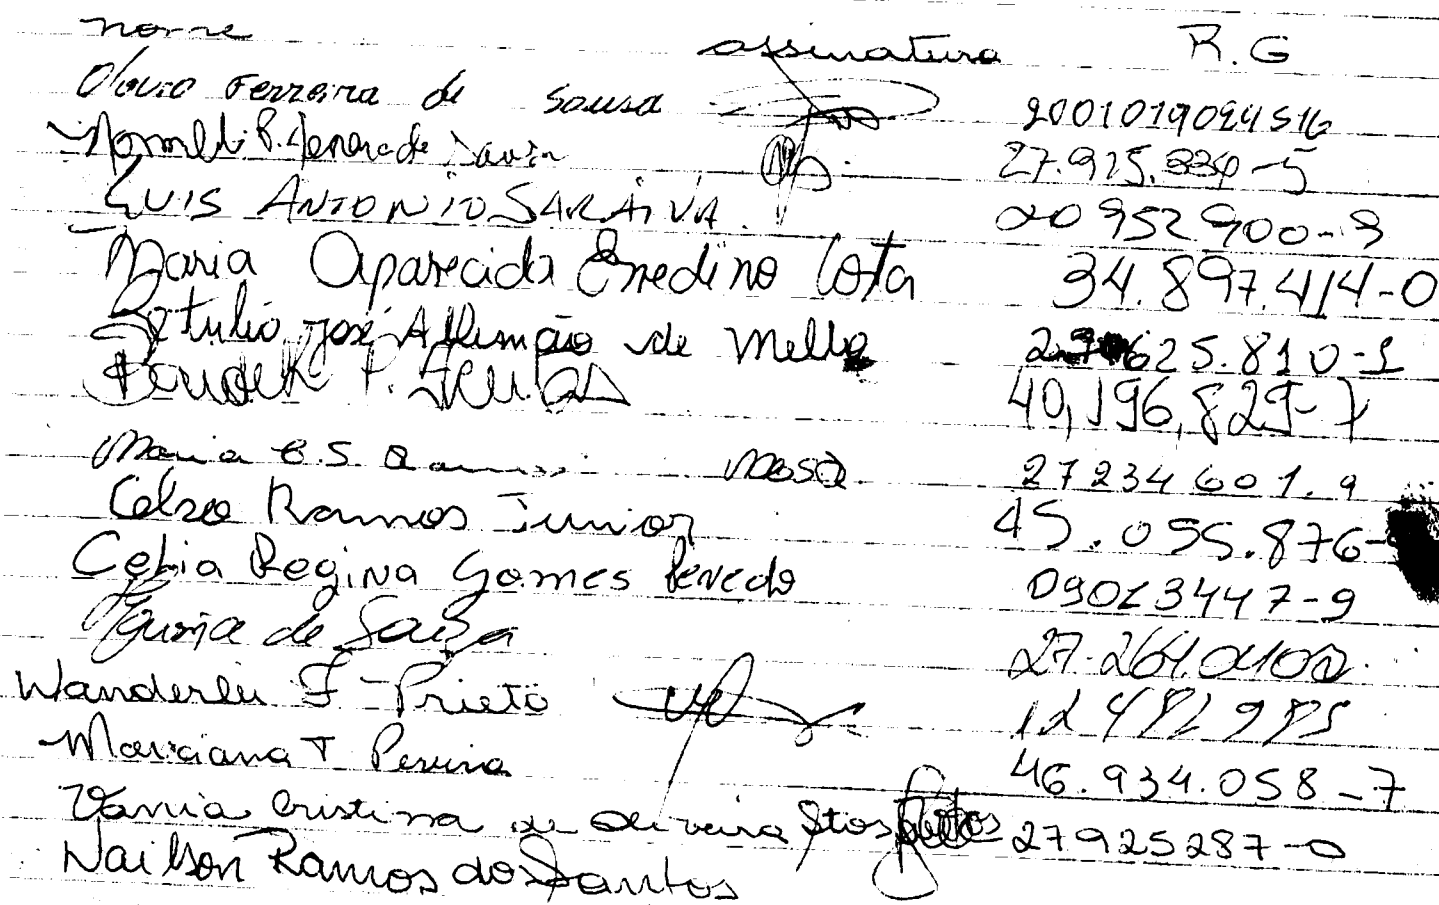 nome assinatura R.G
Ferreira de Sousa 2001019094516
27.925.334-5
LUIS ANTONIO SARAIVA 20952900-9
Maria Aparecida Enedino Costa 34.897.414-0
Getulio José Allemão de Mello 625.810-1
40,196,829-7
Maria C.S. 27234601.9
Celso Ramos Junior 45.055.876-
Celia Regina Gomes Penedo 09013447-9
de Souza 27.264.040
Wanderlei F Prieto 12482985
Marciana T Pereira 46.934.058-7
Vania Cristina de Oliveira Stos 27925287-0
Nailson Ramos dos Santos